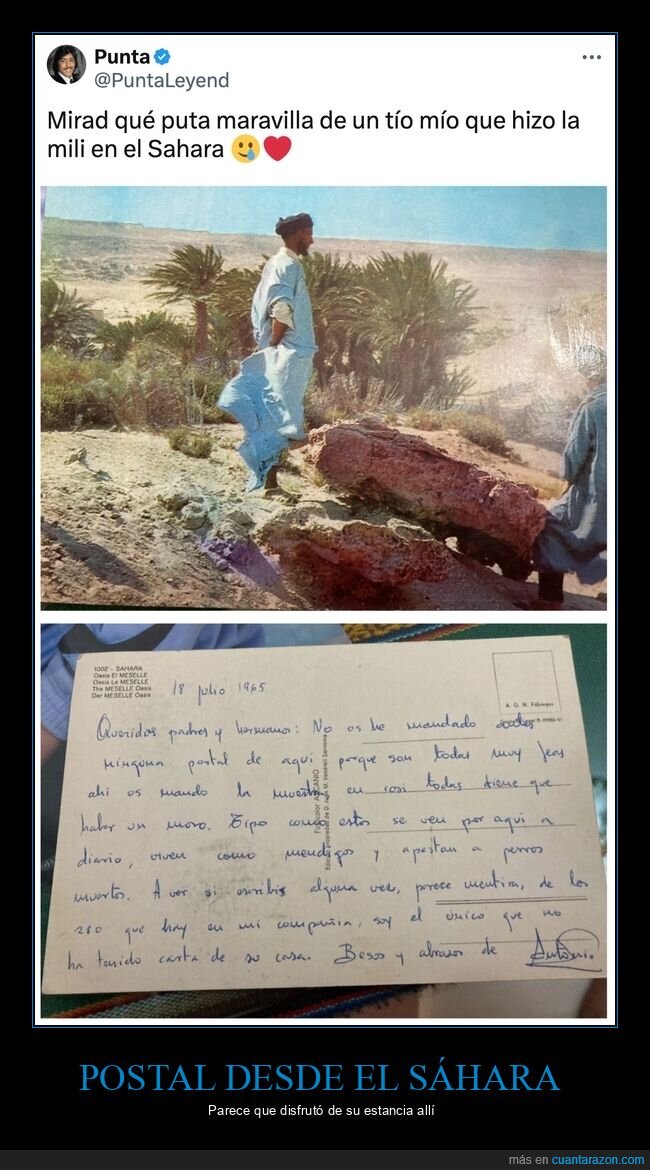 Punta
@PuntaLeyend
Mirad qué puta maravilla de un tío mío que hizo la
mili en el Sahara 🥲❤️
1002 - SAHARA
Oasis El MESELLE
Oasis Le MESELLE
The MESELLE Oasis
Der MESELLE Oasis
18 julio 1965
A. G. N. Fábregas
Queridos padres y hermanos: No os he mandado antes
ninguna postal de aqui porque son todas muy feas
ahi os mando la muestra en casi todas tiene que
haber un moro. Tipo como estos se ven por aqui a
diario, viven como mendigos y apestan a perros
muertos. A ver si escribis alguna vez, parece mentira, de los
280 que hay en mi compañia, soy el único que no
ha tenido carta de su casa. Besos y abrazos de Antonio.
POSTAL DESDE EL SÁHARA
Parece que disfrutó de su estancia allí
más en cuantarazon.com